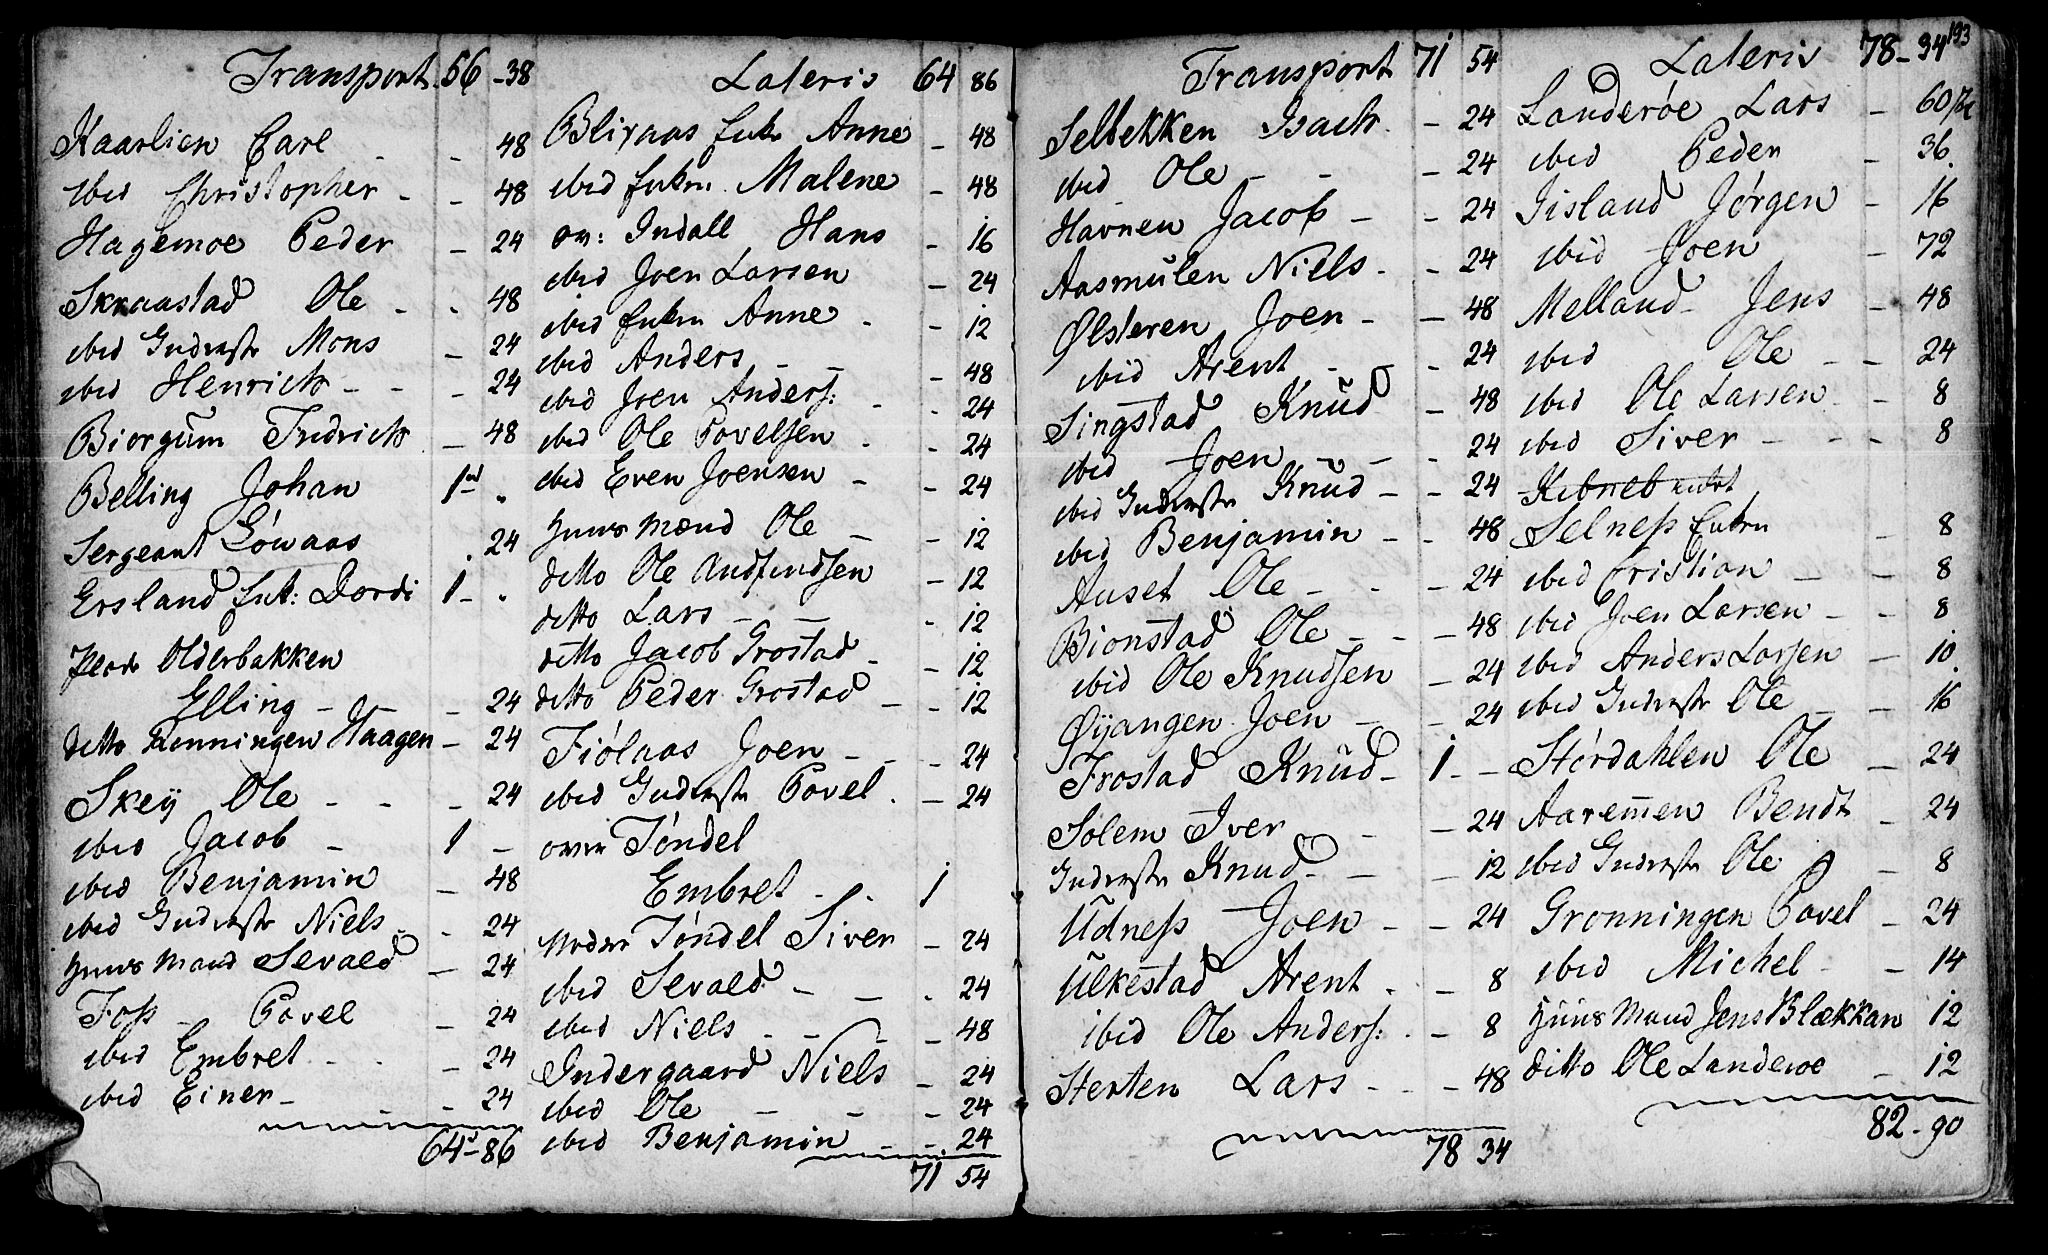 Transport 56 - 38
Kaarlien Carl - - 48
ibid Christopher - - 48
Hagemoe Peder - 24
Skraastad Ole - - 48
ibid Inderste Mons - 24
ibid Henrich - - - 24
Biorgum Fredrich - 48
Belling Johan 1 - "
Sergeant Löwaas . 24
Ersland Enk: Dordi 1 - .
Olderbakken
Elling - - - 24
ditto Rønningen Haagen - 24
Skeij Ole - - - 24
ibid Jacob - 1 -
ibid Benjamin - 48
ibid Inderste Niels - - 24
Huus Mand Sevald - 24
Foss - Povel - 24
ibid Embret - - - 24
ibid Einer - - - 24
64 - 86
Lateris 64 86
Blixaas Enke Anne - 48
ibid Enken Malene - 48
ov: Indall Hans - 16
ibid Joen Larsen - 24
ibid Enken Anne - - 12
ibid Anders - - - 48
ibid Joen Anders: - - 24
ibid Ole Povelsen - - 24
ibid Even Joensen - - 24
Huus Mænd Ole - - 12
ditto Ole Audfindsen - 12
ditto Lars - - - 12
ditto Jacob Grostad - - 12
ditto Peder Grostad - - 12
Fiölaas Joen - - - 24
ibid Inderste Povel . - 24
over Töndel
Embret - - 1
Nedre Töndel Siver - 24
ibid Sevald - - . 24
ibid Niels - - - 48
Indergaard Niels - 24
ibid Ole - - - 24
ibid Benjamin - - 24
71 54
193
Transport 71 54
Selbekken Isach - - 24
ibid Ole - - - 24
Havnen Jacob - - 24
Aasmulen Niels - - 24
Ølsteren Joen - - 48
ibid Arent - - - 24
Singstad Knud - 48
ibid Joen - - - 24
ibid Inderste Knud - - 24
ibid Benjamin - - 48
Auset Ole - - - 24
Bionstad Ole - - - 48
ibid Ole Knudsen - 24
Øyangen Joen - - 24
Frostad Knud - 1 - -
Solem Iver - - - 24
Inderste Knud - - - 12
Udness Joen - - 24
Ulkestad Arent . - 8
ibid Ole Anders: . - 8
Sterten Lars - - - 48
78 34
Lateris 78 - 34
Landeröe Lars - 60
ibid Peder - 36
Iisland Jörgen - 16
ibid Joen - 72
Melland Jens - 48
ibid Ole - - 24
ibid Ole Larsen - - 8
ibid Siver - - - 8
Selness Enken - 8
ibid Cristian - - 8
ibid Joen Larsen - - 8
ibid Anders Larsen - 10
ibid Inderste Ole - - 16
Stördahlen Ole - 24
Aaremmen Bendt - 24
ibid Inderste Ole - 8
Grønningen Povel - 24
ibid Michel - - 14
Huus Mand Jens Blækkan 12
ditto Ole Landeroe - 12
82 - 90